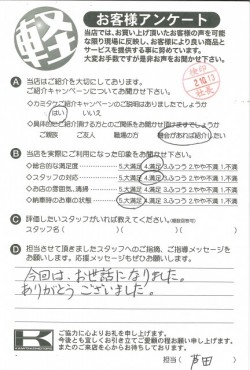 軽
お客様アンケート
当店では、お買い上げ頂いたお客様の声を可能
な限り現場に反映し、お客様により良い商品と
サービスを提供する事に努めています。
大変お手数ですが是非お声をお聞かせ下さい。
A 当店はご紹介を大切にしております。
ご紹介キャンペーンについてお聞かせ下さい?
◇カミタウンご紹介キャンペーンのご説明はありましたでしょうか
はい いいえ
◇具体的にご紹介頂ける方とのご関係をお聞かせ頂けますでしょうか
ご親族 ご友人 職場の方 機会があれば紹介したい
B 当店を実際にご利用になった印象をお聞かせ下さい。
◇総合的な満足度 5.大満足 4.満足 3.ふつう 2.やや不満 1.不満
◇スタッフの対応 5.大満足 4.満足 3.ふつう 2.やや不満 1.不満
◇お店の雰囲気、清掃 5.大満足 4.満足 3.ふつう 2.やや不満 1.不満
◇納車時のお車の状態 5.大満足 4.満足 3.ふつう 2.やや不満 1.不満
C 評価したいスタッフがいれば教えてください。(複数回答可)
スタッフ名( )( )( )
D 担当させて頂きましたスタッフへのご指摘、ご指導メッセージを
お願いします。応援メッセージもぜひお願いします。
今回は、お世話になりました。
ありがとうございました。
K
ご協力に心よりお礼を申し上げます。
今後とも宜しくお引き立てご愛顧の程お願い申し上げます。
またのご来店を心からお待ちしております。
担当( 芦田 )